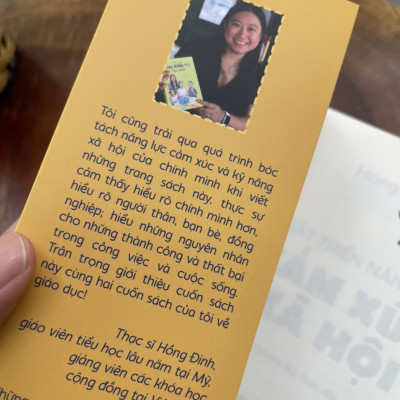 Tôi cũng trải qua quá trình bóc
tách năng lực cảm xúc và kỹ năng
xã hội của chính mình khi viết
những trang sách này, thực sự
cảm thấy hiểu rõ chính mình hơn,
hiểu rõ người thân, bạn bè, đồng
nghiệp; hiểu những nguyên nhân
cho những thành công và thất bại
trong công việc và cuộc sống.
Trân trọng giới thiệu cuốn sách
này cùng hai cuốn sách của tôi về
giáo dục!
Thạc sĩ Hồng Đinh,
giáo viên tiểu học lâu năm tại Mỹ,
giảng viên các khóa học
cộng đồng tại